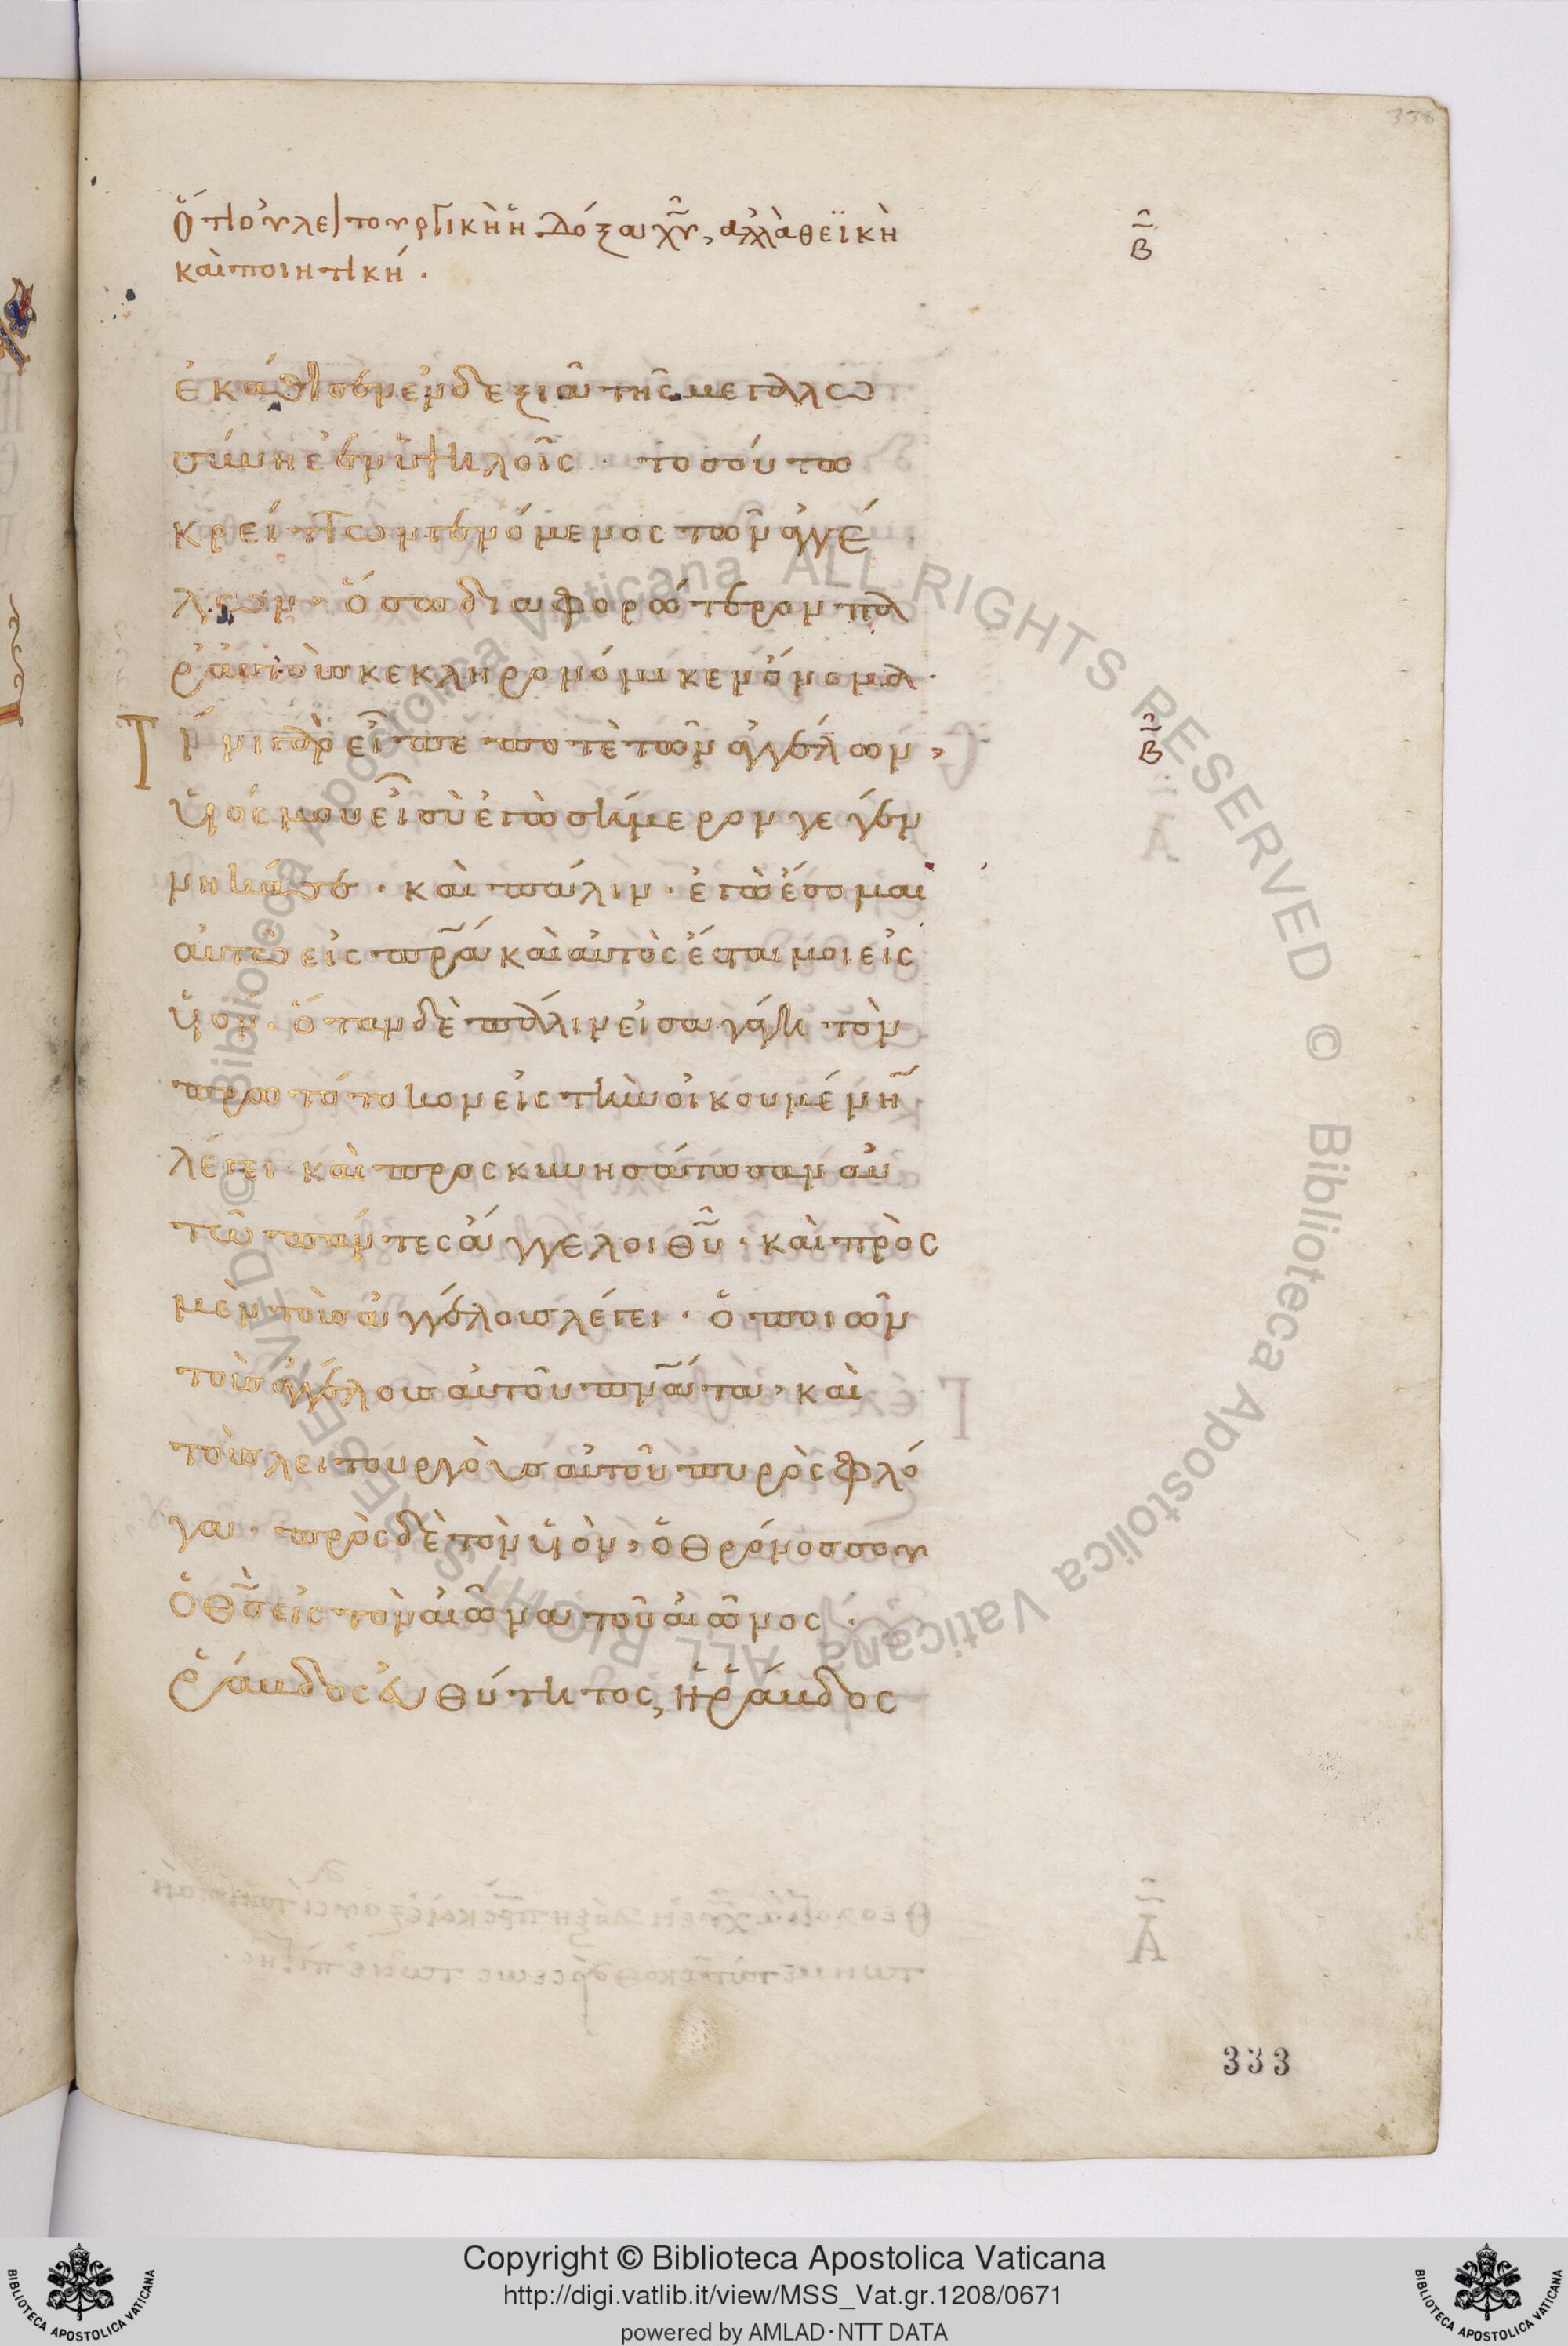 338
Ὅτι οὐ λειτουργικὴ ἡ δόξα χυ̃, ἀλλὰ θεϊκὴ
καὶ ποιητική.
Β
ἐκάθισεν ἐν δεξιᾷ τῆς μεγαλω
σύνης ἐν ὑψηλοῖς · τοσούτω
κρείττων γενόμενος τῶν ἀγγέ
λων · ὅσω διαφορώτερον πα
ρ' αὐτοὺς κεκληρονόμηκεν ὄνομα ·
Τίνι γὰρ εἶπέ ποτε τῶν ἀγγέλων,
Β
υἱός μου εἶ σὺ ἐγὼ σήμερον γεγέν
νηκά σε · καὶ πάλιν · ἐγὼ ἔσομαι
αὐτῶ εἰς πρ̃α καὶ αὐτὸς ἔσται μοι εἰς
υἱόν · ὅταν δὲ πάλιν εἰσαγάγη τὸν
πρωτότοκον εἰς τὴν οἰκουμένη̃
λέγει · καὶ προσκυνησάτωσαν αὐ
τῶ πάντες ἄγγελοι θυ̃ · καὶ πρὸς
μὲν τοὺς ἀγγέλους λέγει · ὁ ποιῶν
τοὺς ἀγγέλους αὐτοῦ πνα̃τα, καὶ
τοὺς λειτουργοὺς αὐτοῦ πυρὸς φλό
γα · πρὸς δὲ τὸν υἱὸν, ὁ θρόνος σου
ὁ θς̃ εἰς τὸν αἰῶνα τοῦ αἰῶνος ·
ῥάβδος εὐθύτητος, ἡ ῥάβδος
333
Copyright © Biblioteca Apostolica Vaticana
http://digi.vatlib.it/view/MSS_Vat.gr.1208/0671
powered by AMLAD·NTT DATA
BIBLIOTECA APOSTOLICA VATICANA
BIBLIOTECA APOSTOLICA VATICANA
© Biblioteca Apostolica Vaticana ALL RIGHTS RESERVED © Biblioteca Apostolica Vaticana ALL RIGHTS RESERVED